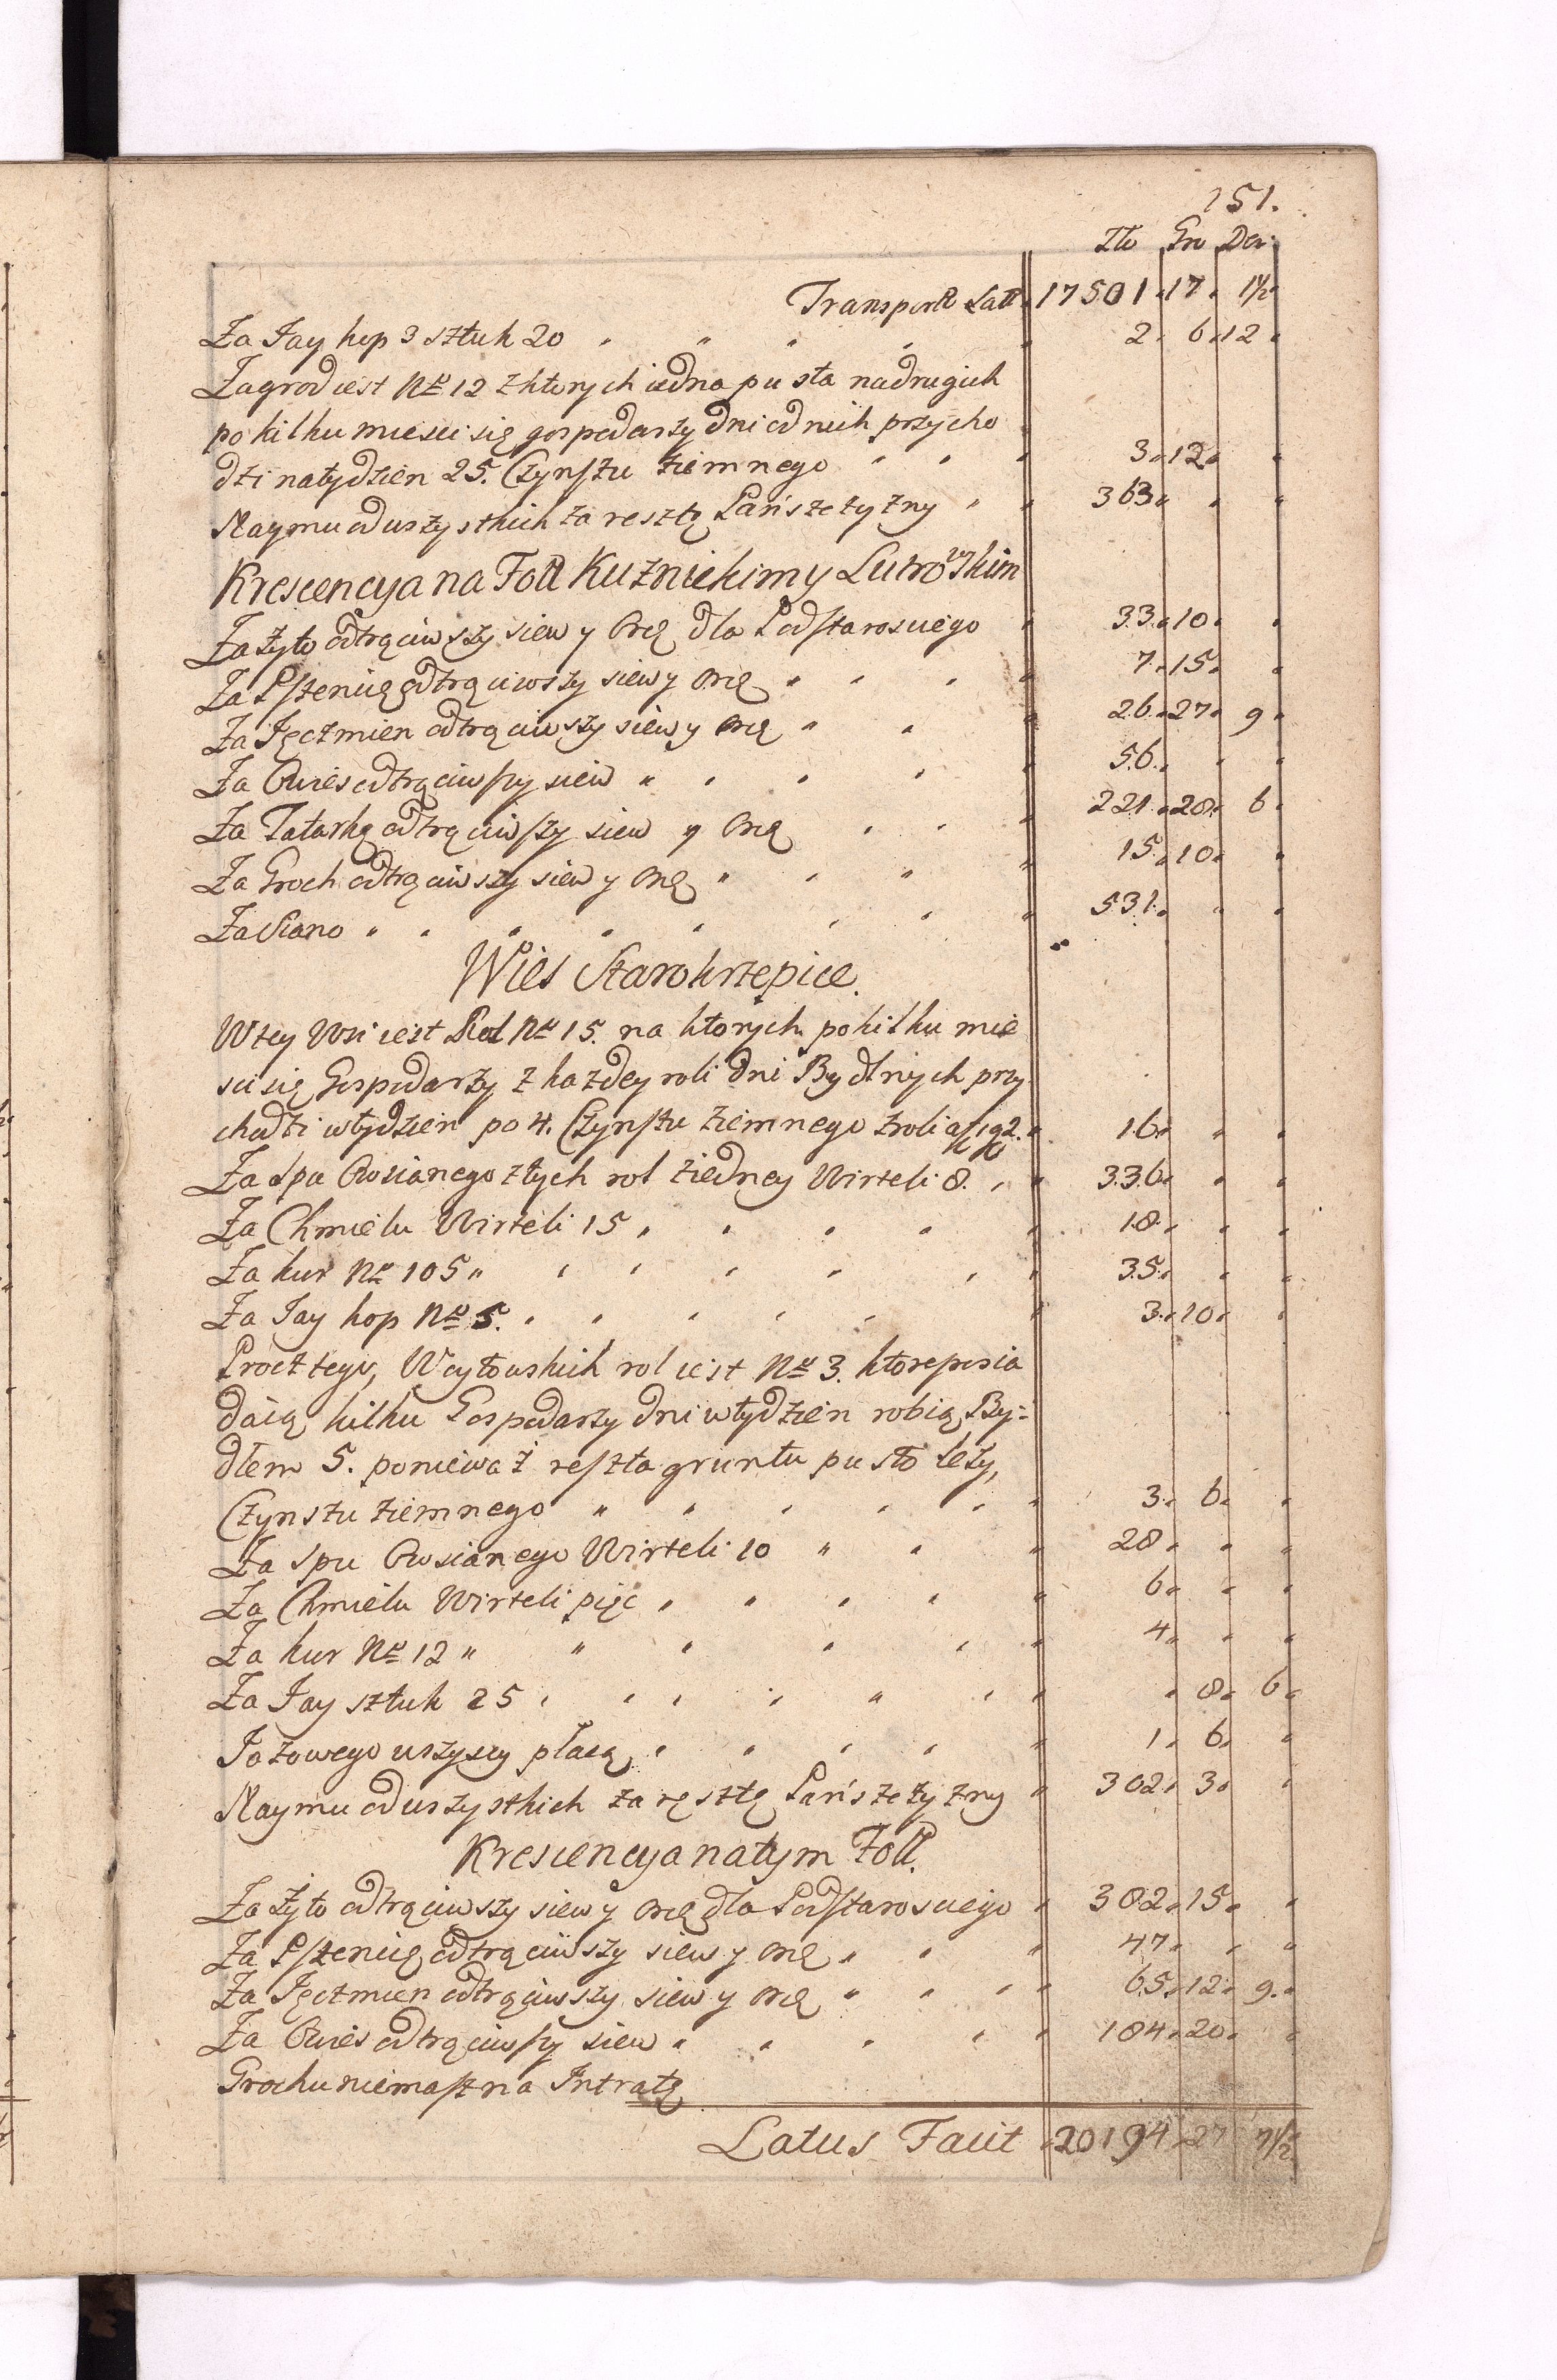 151.
Zło Gro Den:
Transport Latt 17501 17 1½
Za Jay kop 3 sztuk 20 2 6 12
Zagrod iest Nro 12 z ktorych iedna pusta na drugich
po kilku miesci się gospodarzy dni od nich przycho
dzi na tydzien 25. Czynszu ziemnego 3 12
Naymu od wszystkich za resztę Panszczyzny 363
Krescencya na Foll Kuznickim y Lutrowskim
Za Zyto odtrąciwszy siew y Orę dla Podstarosciego 33 10
Za Pszenicę odtrąciwszy siew y Orę 7 15
Za Jęczmien odtrąciwszy siew y Orę 26 27 9
Za Owies odtrąciwszy siew 56
Za Tatarkę odtrąciwszy siew y Orę 221 20 6
Za Groch odtrąciwszy siew y Orę 15 10
Za Siano 531
Wies Starokrzepice.
W tey Wsi iest Rol Nro 15. na ktorych po kilku mie
sci się Gospodarzy z kazdey roli dni Bydlnych przy
chodzi w tydzien po 4. Czynszu ziemnego z roli a 16
Za Spu Owsianego z tych rol z iedney Wirteli 8. 336
Za Chmielu Wirteli 15 18
Za kur Nro 105 35
Za Jay kop Nro 5. 3 10
Procz tego, Woytowskich rol iest Nro 3. ktore posia
daią kilku Gospodarzy dni w tydzien robią By=
dłem 5. poniewaz reszta gruntu pusto lezy,
Czynszu ziemnego 3 6
Za Spu Owsianego Wirteli 10 28
Za Chmielu Wirteli pięc 6
Za kur Nro 12 4
Za Jay sztuk 25 8 6
Jazowego wszyscy płacą 1 6
Naymu od wszystkich za resztę Panszczyzny 302 3
Krescencya na tym Foll.
Za Zyto odtrąciwszy siew y Orę dla Podstarosciego 302 15
Za Pszenicę odtrąciwszy siew y Orę 47
Za Jęczmien odtrąciwszy siew y Orę 65 12 9
Za Owies odtrąciwszy siew 184 20
Grochu niemasz na Intratę
Latus Facit 20194 27 7½